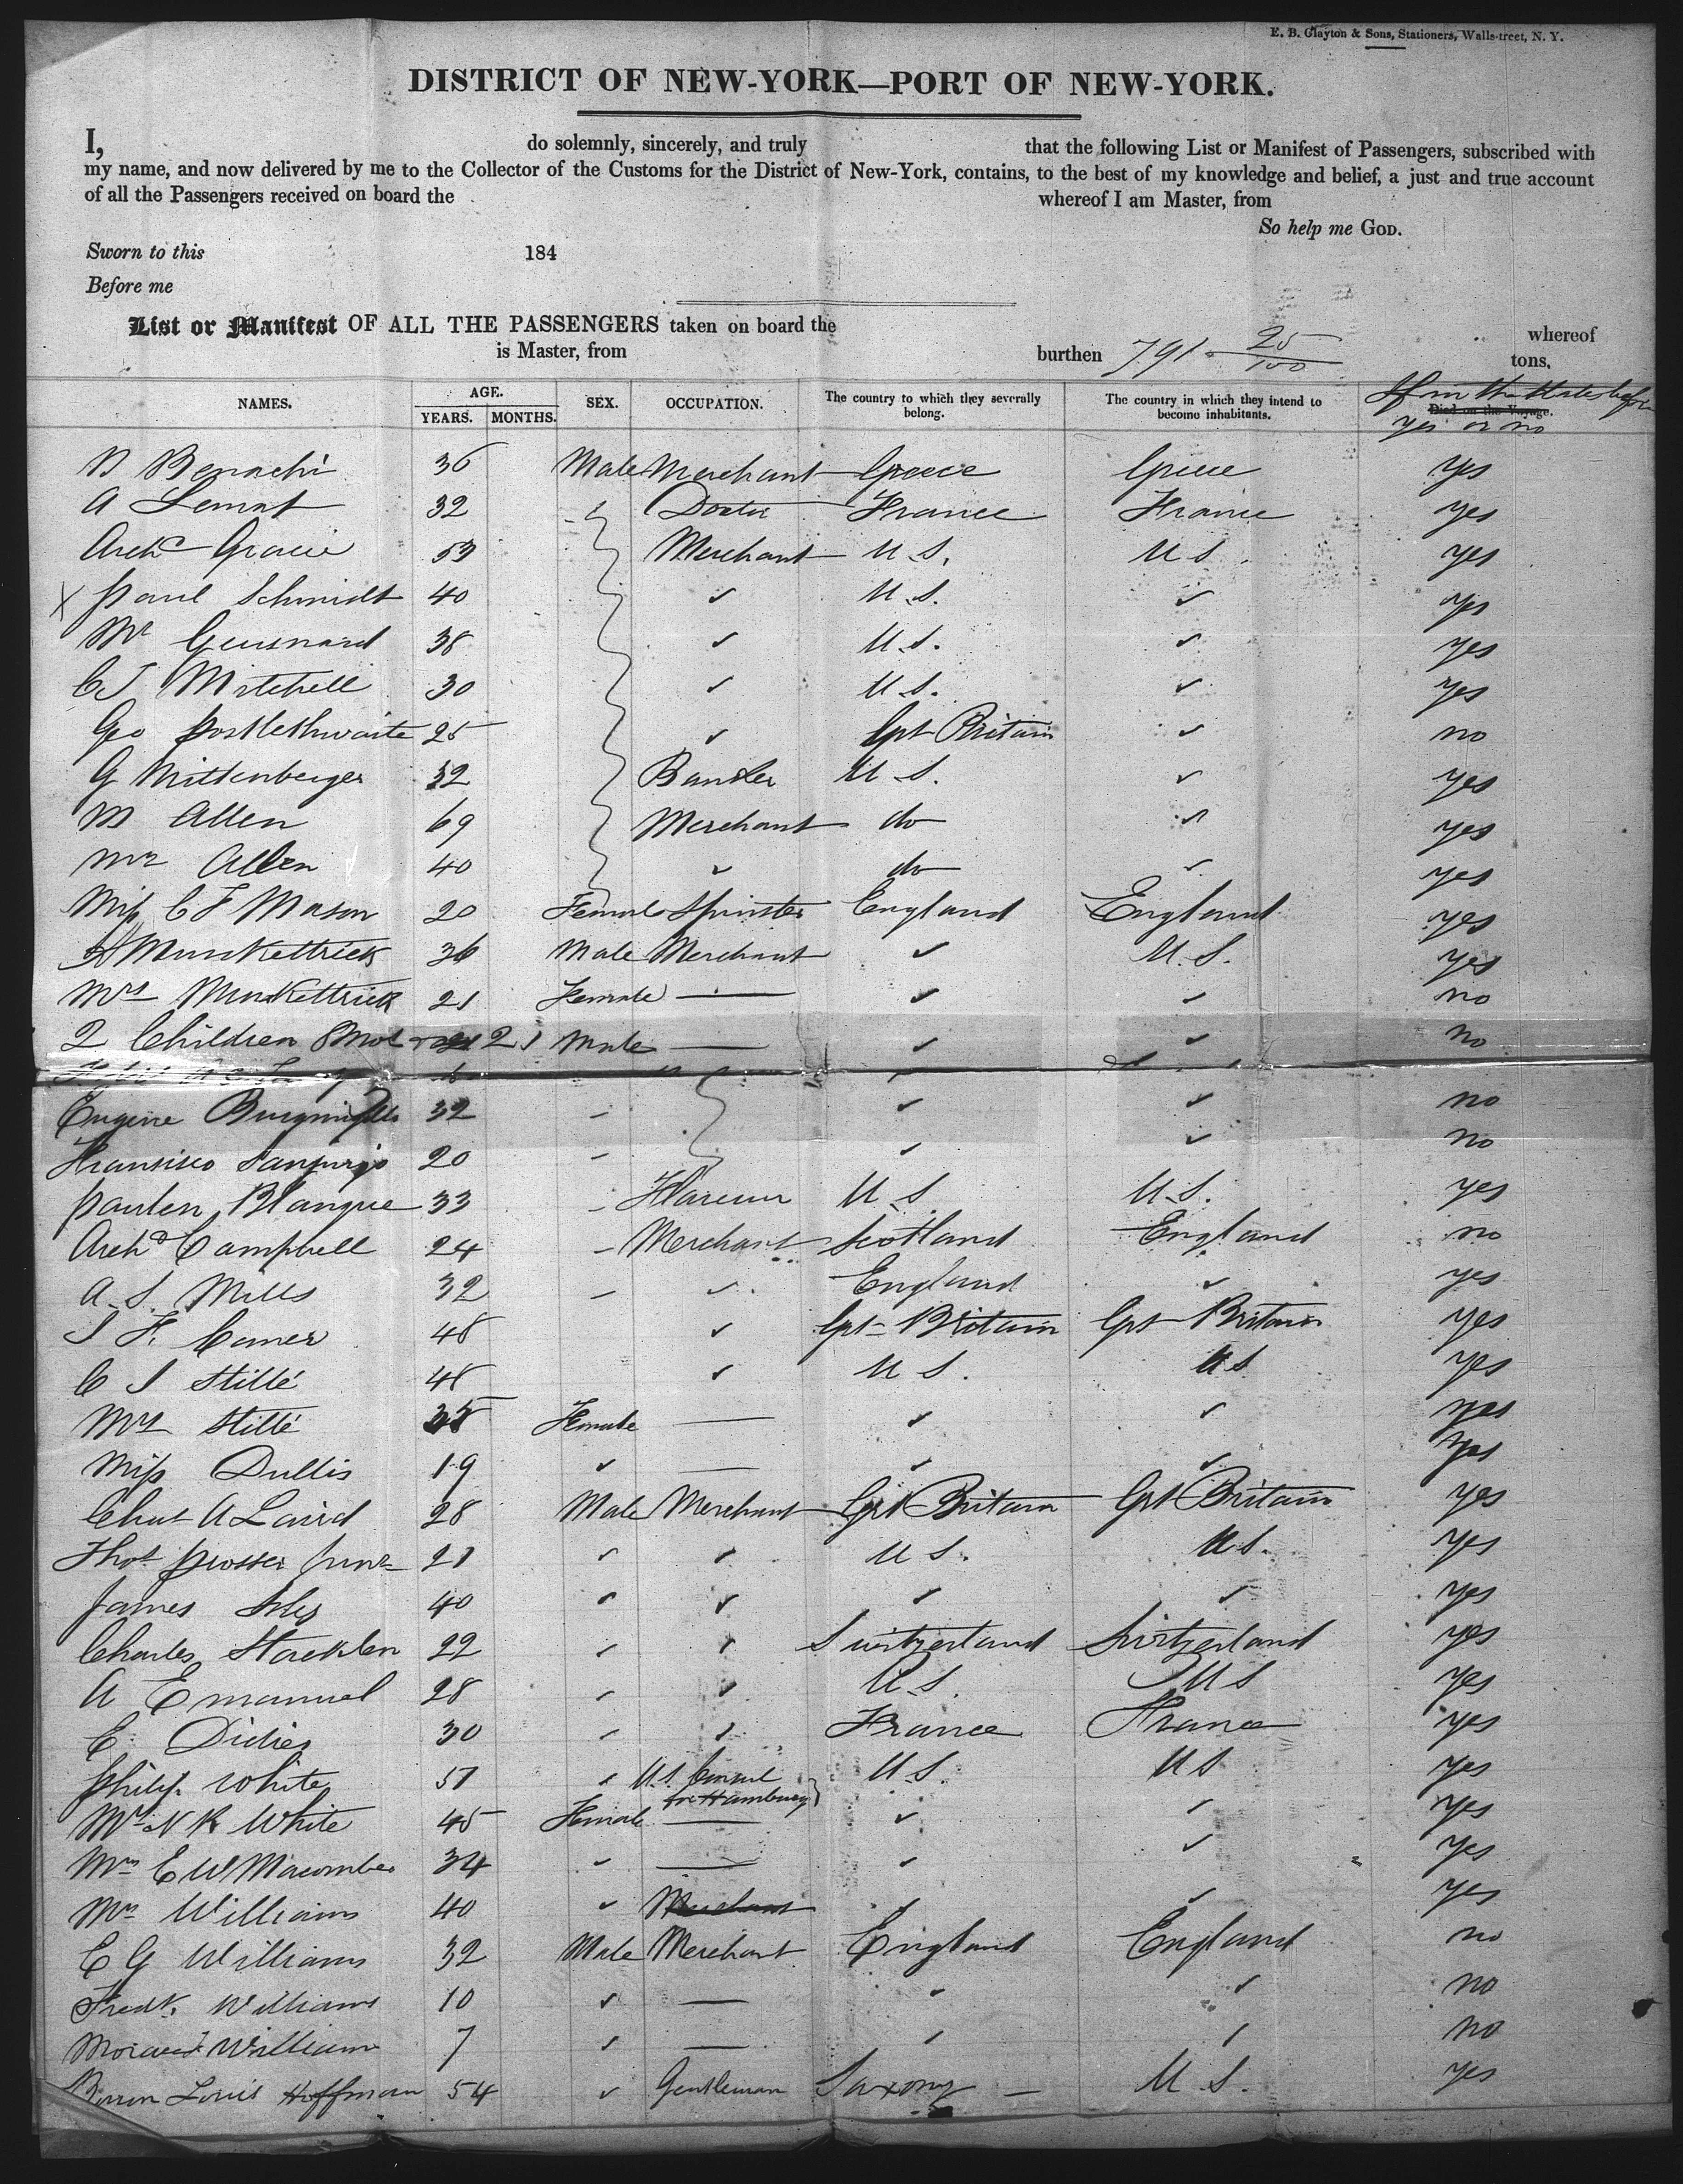 E. B. Clayton & Sons, Stationers, Walls-treet, N. Y.
DISTRICT OF NEW-YORK—PORT OF NEW-YORK.
I, do solemnly, sincerely, and truly that the following List or Manifest of Passengers, subscribed with
my name, and now delivered by me to the Collector of the Customs for the District of New-York, contains, to the best of my knowledge and belief, a just and true account
of all the Passengers received on board the whereof I am Master, from
So help me GOD.
Sworn to this 184
Before me
List or Manifest OF ALL THE PASSENGERS taken on board the whereof
is Master, from burthen 791 25/100 tons.
NAMES. AGE. YEARS. MONTHS. SEX. OCCUPATION. The country to which they severally belong. The country in which they intend to become inhabitants. Died on the Voyage. If in the States before yes or no
Benachi 36 Male Merchant Greece Greece yes
A 32 Doctor France France yes
Archd Gracie 53 Merchant U.S. U.S. yes
X Paul Schmidt 40 ✓ U.S. ✓ yes
Mr 38 ✓ U.S. ✓ yes
Mitchell 30 ✓ U.S. ✓ yes
Geo Postlethwaite 25 ✓ Gt Britain ✓ no
G Mittenberger 32 Banker U.S. ✓ yes
M Allen 69 Merchant do ✓ yes
Mr Allen 40 ✓ do ✓ yes
Miss C F Mason 20 Female Spinster England England yes
Munkettrick 36 Male Merchant ✓ U.S. yes
Mrs Munkettrick 21 Female — ✓ ✓ no
2 Children 2 1 Male — ✓ ✓ no
Eugene 32 - ✓ ✓ no
Fransisco 20 - ✓ ✓ no
Blanque 33 - U.S. U.S. yes
Archd Campbell 24 - Merchant Scotland England no
A. S. Mills 32 - ✓ England ✓ yes
48 ✓ Gt Britain Gt Britain yes
C J Stillé 48 ✓ U.S. U.S. yes
Mrs Stillé Female — ✓ ✓ yes
Miss Dullis 19 ✓ — ✓ ✓ yes
A Laird 28 Male Merchant Grt Britain Grt Britain yes
Thos Prosser Junr 21 ✓ ✓ U.S. U.S. yes
James 40 ✓ ✓ ✓ ✓ yes
Charles Stacklen 22 ✓ ✓ Switzerland Switzerland yes
A Emanuel 28 ✓ ✓ U.S. U S yes
E. Didier 30 ✓ ✓ France France yes
Philip White 51 ✓ U.S. Consul for Hamburg U.S. U S yes
Mrs N R White 45 Female — ✓ ✓ yes
Mrs E W Macomber 34 ✓ — ✓ ✓ yes
Mrs Williams 40 ✓ Merchant ✓ ✓ yes
E G Williams 32 Male Merchant England England no
Fredk. Williams 10 ✓ — ✓ ✓ no
Williams 7 ✓ — ✓ ✓ no
Baron Louis Hoffman 54 ✓ Gentleman Saxony — U.S. yes